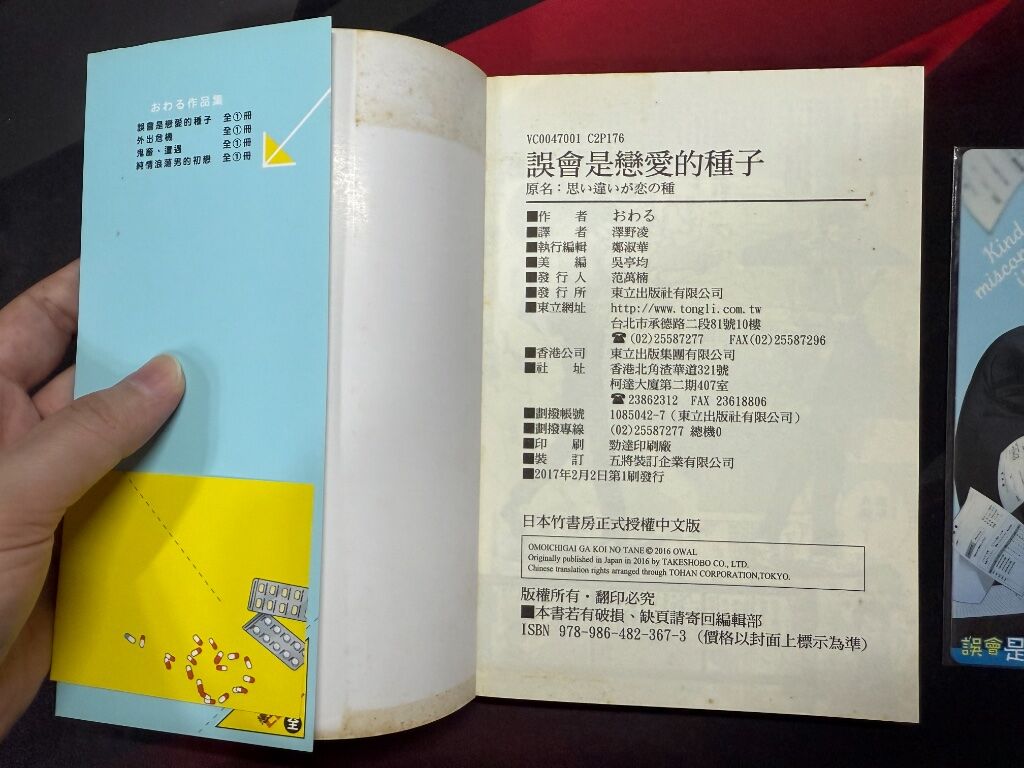 おわる作品集
誤會是戀愛的種子 全①冊
外出危機 全①冊
鬼畜、遭遇 全①冊
純情浪蕩男的初戀 全①冊
全
VC0047001 C2P176
誤會是戀愛的種子
原名：思い違いが恋の種
■作 者 おわる
■譯 者 澤野凌
■執行編輯 鄭淑華
■美 編 吳亭均
■發行人 范萬楠
■發行所 東立出版社有限公司
■東立網址 http://www.tongli.com.tw
台北市承德路二段81號10樓
☎(02)25587277 FAX(02)25587296
■香港公司 東立出版集團有限公司
■社 址 香港北角渣華道321號
柯達大廈第二期407室
☎23862312 FAX 23618806
■劃撥帳號 1085042-7（東立出版社有限公司）
■劃撥專線 (02)25587277 總機0
■印 刷 勁達印刷廠
■裝 訂 五將裝訂企業有限公司
■2017年2月2日第1刷發行
日本竹書房正式授權中文版
OMOICHIGAI GA KOI NO TANE © 2016 OWAL
Originally published in Japan in 2016 by TAKESHOBO CO., LTD.
Chinese translation rights arranged through TOHAN CORPORATION,TOKYO.
版權所有・翻印必究
■本書若有破損、缺頁請寄回編輯部
ISBN 978-986-482-367-3（價格以封面上標示為準）
Kind
誤會是